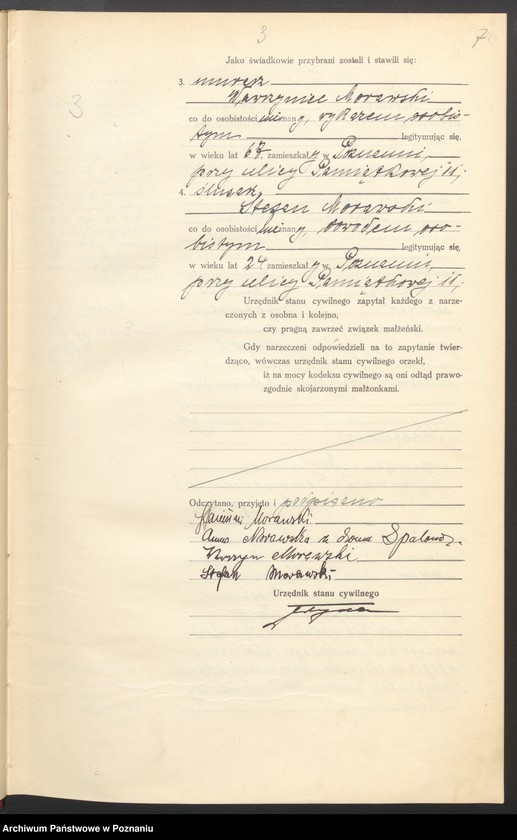 3
7
3
Jako świadkowie przybrani zostali i stawili się:
3. murarz
Wawrzyniec Morawski
co do osobistości nieznany, wykazem osobis-
tym legitymując się,
w wieku lat 67 zamieszkały w Poznaniu,
przy ulicy Pamiątkowej 11;
4. ślusarz
Stefan Morawski
co do osobistości nieznany, dowodem oso-
bistym legitymując się,
w wieku lat 24 zamieszkały w Poznaniu,
przy ulicy Pamiątkowej 11;
Urzędnik stanu cywilnego zapytał każdego z narze-
czonych z osobna i kolejno,
czy pragną zawrzeć związek małżeński.
Gdy narzeczeni odpowiedzieli na to zapytanie twier-
dząco, wówczas urzędnik stanu cywilnego orzekł,
iż na mocy kodeksu cywilnego są oni odtąd prawo-
zgodnie skojarzonymi małżonkami.
Odczytano, przyjęto i podpisano
Morawski
Anna Morawska z domu
Morawski
Stefan Morawski
Urzędnik stanu cywilnego
Archiwum Państwowe w Poznaniu